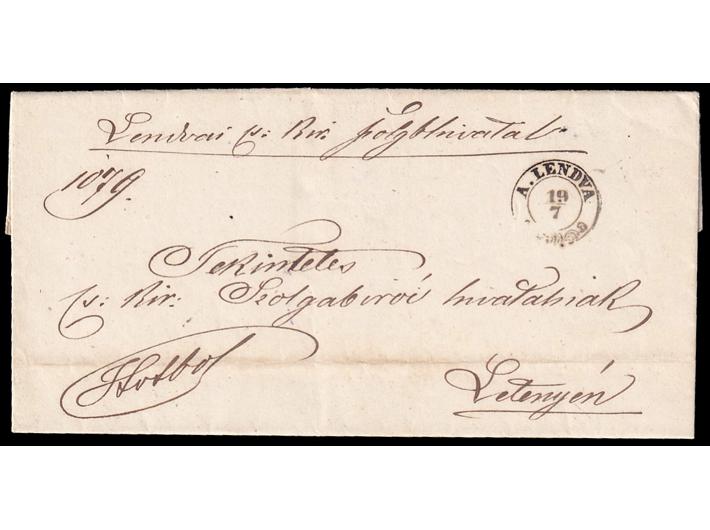 Lendvai cs: Kir: szolgbhivatal
1079.
A. LENDVA
19
7
Tekintetes
cs: Kir: Szolgabirói hivatalnak
Letenyén